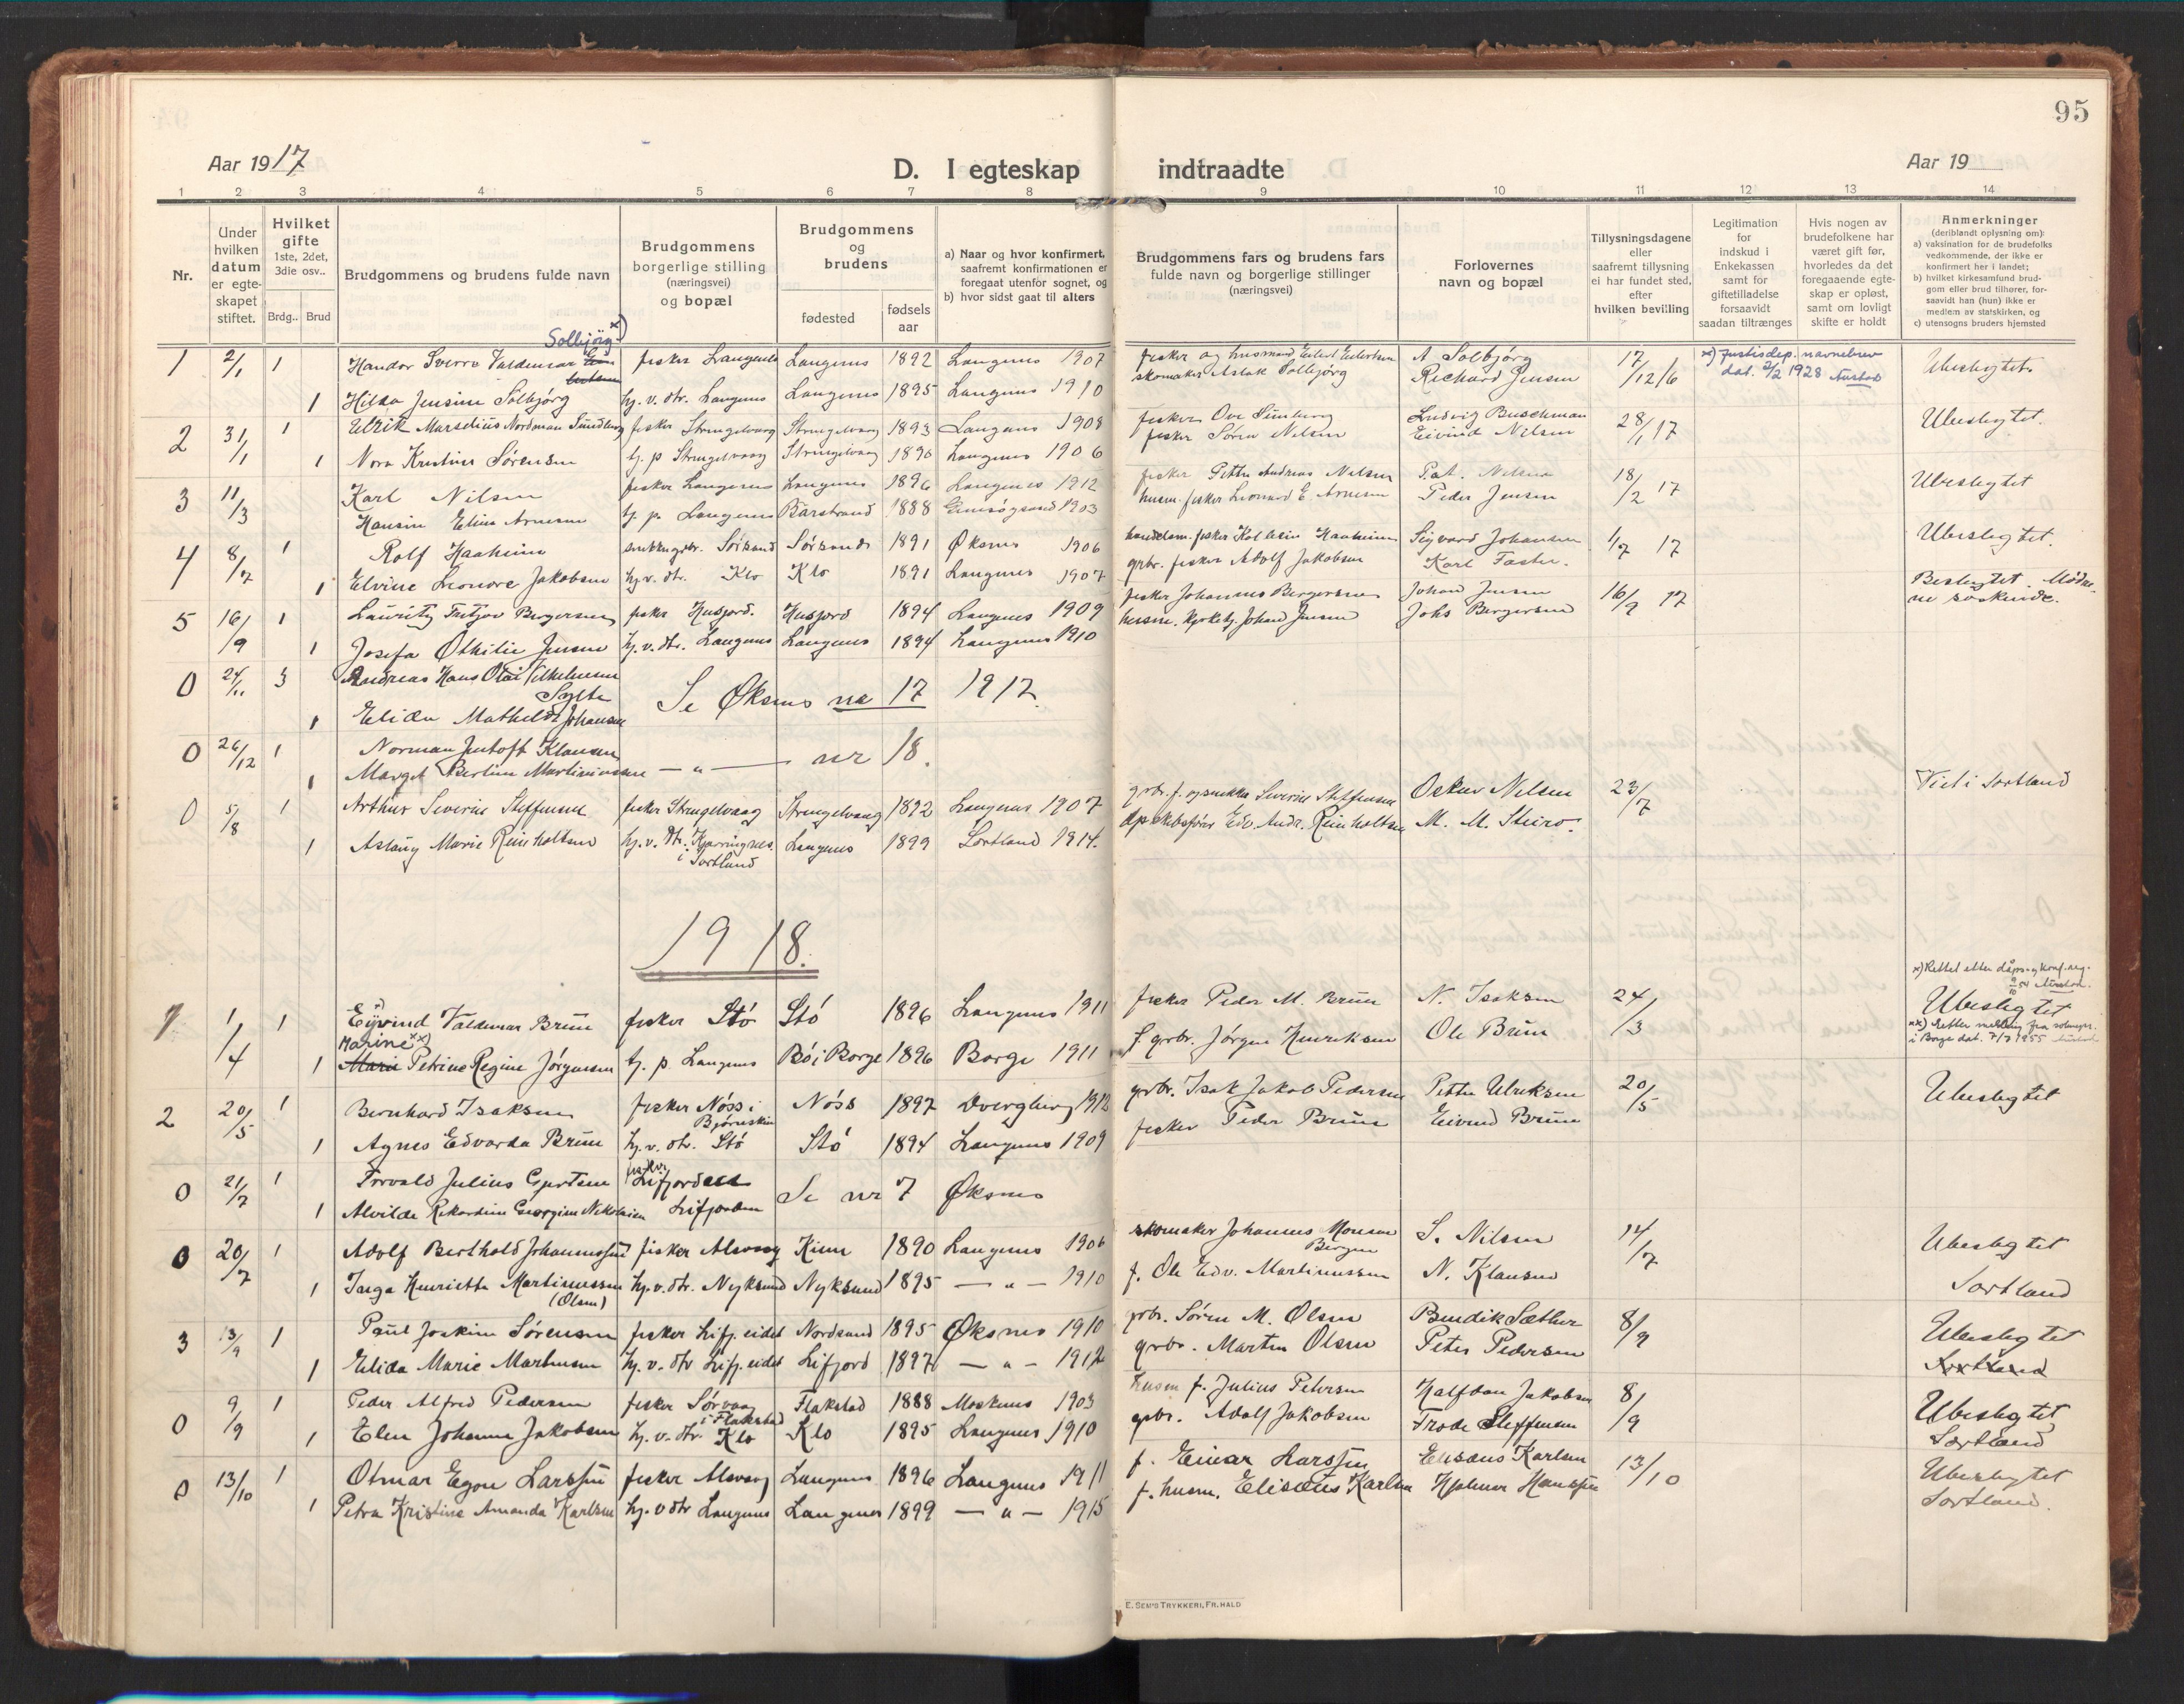 95
Aar 1917
D. I egteskap indtraadte
Aar 19
1 2 3 4 5 6 7 8 9 10 11 12 13 14
Nr.
Under hvilken datum er egte-skapet stiftet.
Hvilket gifte 1ste, 2det, 3die osv..
Brdg.. Brud
Brudgommens og brudens fulde navn
Brudgommens borgerlige stilling (næringsvei) og bopæl
Brudgommens og brudens
fødested
fødsels aar
a) Naar og hvor konfirmert, saafremt konfirmationen er foregaat utenfor sognet, og
b) hvor sidst gaat til alters
Brudgommens fars og brudens fars fulde navn og borgerlige stillinger (næringsvei)
Forlovernes navn og bopæl
Tillysningsdagene eller saafremt tillysning ei har fundet sted, efter hvilken bevilling
Legitimation for indskud i Enkekassen samt for giftetilladelse forsaavidt saadan tiltrænges
Hvis nogen av brudefolkene har været gift før, hvorledes da det foregaaende egte-skap er opløst, samt om lovligt skifte er holdt
Anmerkninger (deriblandt oplysning om):
a) vaksination for de brudefolks vedkommende, der ikke er konfirmert her i landet;
b) hvilket kirkesamfund brud-gom eller brud tilhører, for-saavidt han (hun) ikke er medlem av statskirken, og
c) utensogns bruders hjemsted
Solbjörg x)
1 2/1 1 Handor Sverre Valdemar fisker Langenes Langenes 1892 Langenes 1907 fisker og husmand Eilert Eilertsen A Solbjørg 17/12/6 x) Justisdep. navnebrev Ubeslegtet.
1 Hilda Jensine Solbjørg hj. v. dtr. Langenes Langenes 1895 Langenes 1910 skomaker Aslak Solbjørg Richard Jensen dat. 2/2 1928
2 31/1 1 Ulrik Marselius Nordman Sundberg fisker Strengelvaag Strengelvaag 1893 Langenes 1908 fisker Ove Sünberg Ludvig Buschman 28/1 17 Ubeslegtet.
1 Nora Kristine Sørensen tj. p Strengelvaag Strengelvaag 1890 Langenes 1906 fisker Søren Nilsen Eivind Nilsen
3 11/3 Karl Nilsen fisker Langenes Langenes 1896 Langenes 1912 fisker Petter Andreas Nilsen Pet. Nilsen 18/2 17 Ubeslegtet
Hansine Elise Arnesen tj. p. Langenes Barstrand 1888 Gimsøysand 1903 husm. fisker Leonard E. Arnesen Peder Jensen
4 8/7 1 Rolf Haaheim Sørsand Sørsand 1891 Øksnes 1906 fisker Kolbein Haaheim Sigvard Johansen 1/7 17 Ubeslegtet.
1 Elvine Leonore Jakobsen hj. v. dtr. Klo Klo 1891 Langenes 1907 grbr. fisker Adolf Jakobsen Karl
5 16/9 1 Lauritz Fritjov Bergersen fisker Husjord. Husjord 1894 Langenes 1909 fisker Johannes Bergersen Johan Jensen 16/9 17 Beslegtet. Mødre-
1 Josefa Othilie Jensen hj. v. dtr. Langenes Langenes 1894 Langenes 1910 husm. kirketj. Johan Jensen Johs Bergersen ne søskende.
0 24/11 3 Andreas Hans Olai Vilhelmsen Sylte Se Øksnes no 17 1917
1 Elida Mathilde Johansen
0 26/12 1 Norman Jentoft Klausen
1 Marget Bertine Martinussen — " — nr 18.
0 5/8 1 Arthur Severin Steffensen fisker Strengelvaag Strengelvaag 1892 Langenes 1907 grbr. f. og snekker Severin Steffensen Oskar Nilsen 23/7 Viet i Sortland
1 Aslaug Marie Reinholtsen hj. v. dtr. Kjørringnes. i Sortland Langenes 1899 Sortland 1914. dpskibsfører Edv. Andr. Reinholtsen M. M. Steiro.
1918.
x) Rettet etter dåps- og konf.reg.
1 1/4 1 Eyvind Valdemar Brun fisker Stø Stø 1896 Langenes 1911 fisker Peder M. Brun N. Isaksen 24/3 Ubeslegtet
Marine xx)
1 Marie Petrine Regine Jørgensen tj. p. Langenes Bø i Borge 1896 Borge 1911 f. grbr. Jørgen Henriksen Ole Brun xx) Retter melding fra soknepr. i Borge dat. 7/7 1955
2 20/5 1 Bernhard Isaksen fisker Nøss i Bjørnskin Nøss 1897 Dverberg 1912 grbr. Isak Jakob Pedersen Petter Ulriksen 20/5 Ubeslegtet
1 Agnes Edvarda Brun hj. v. dtr. Stø Stø 1894 Langenes 1909 fisker Peder Brun Eivind Brun
0 21/7 1 Torvald Julius Gjertsen fisker Lifjorden Se nr 7 Øksnes
1 Alvilde Rikardine Georgine Nikolaisen Lifjorden
0 20/7 1 Adolf Berthold Johannessen fisker Alsvaag Kinn 1890 Langenes 1906 skomaker Johannes Monsen Bergen S. Nilsen 14/7 Ubeslegtet
1 Inga Henriette Martinussen (Olsen) hj. v. dtr. Nyksund Nyksund 1895 — " — 1910 f. Ole Edv. Martinussen N. Klausen Sortland
3 13/9 1 Paul Joakim Sørensen fisker Lifj. eidet Nordsand 1895 Øksnes 1910 grbr. Søren M. Olsen Bendik Sæther 8/9 Ubeslegtet
1 Elida Marie Martinsen hj. v. dtr Lifj. eidet Lifjord 1897 — " — 1912 grbr. Martin Olsen Peter Pedersen Sortland
0 9/9 1 Peder Alfred Pedersen fisker Sørvaag i Flakstad Flakstad 1888 Moskenes 1903 husm f. Julius Petersen Halfdan Jakobsen 8/9 Ubeslegtet
1 Elen Johanne Jakobsen hj. v. dtr. Klo Klo 1895 Langenes 1910 grbr. Adolf Jakobsen Frode Steffensen Sortland
0 13/10 1 Otmar Egon Larssen fisker Alsvaag Langenes 1896 Langenes 1911 f. Einar Larssen Elisæus Karlsen 13/10 Ubeslegtet
1 Petra Kristine Amanda Karlsen hj. v dtr Langenes Langenes 1899 — " — 1915 f. husm. Elisæus Karlsen Hjalmar Hanssen Sortland.
E. SEM'S TRYKKERI, FR. HALD